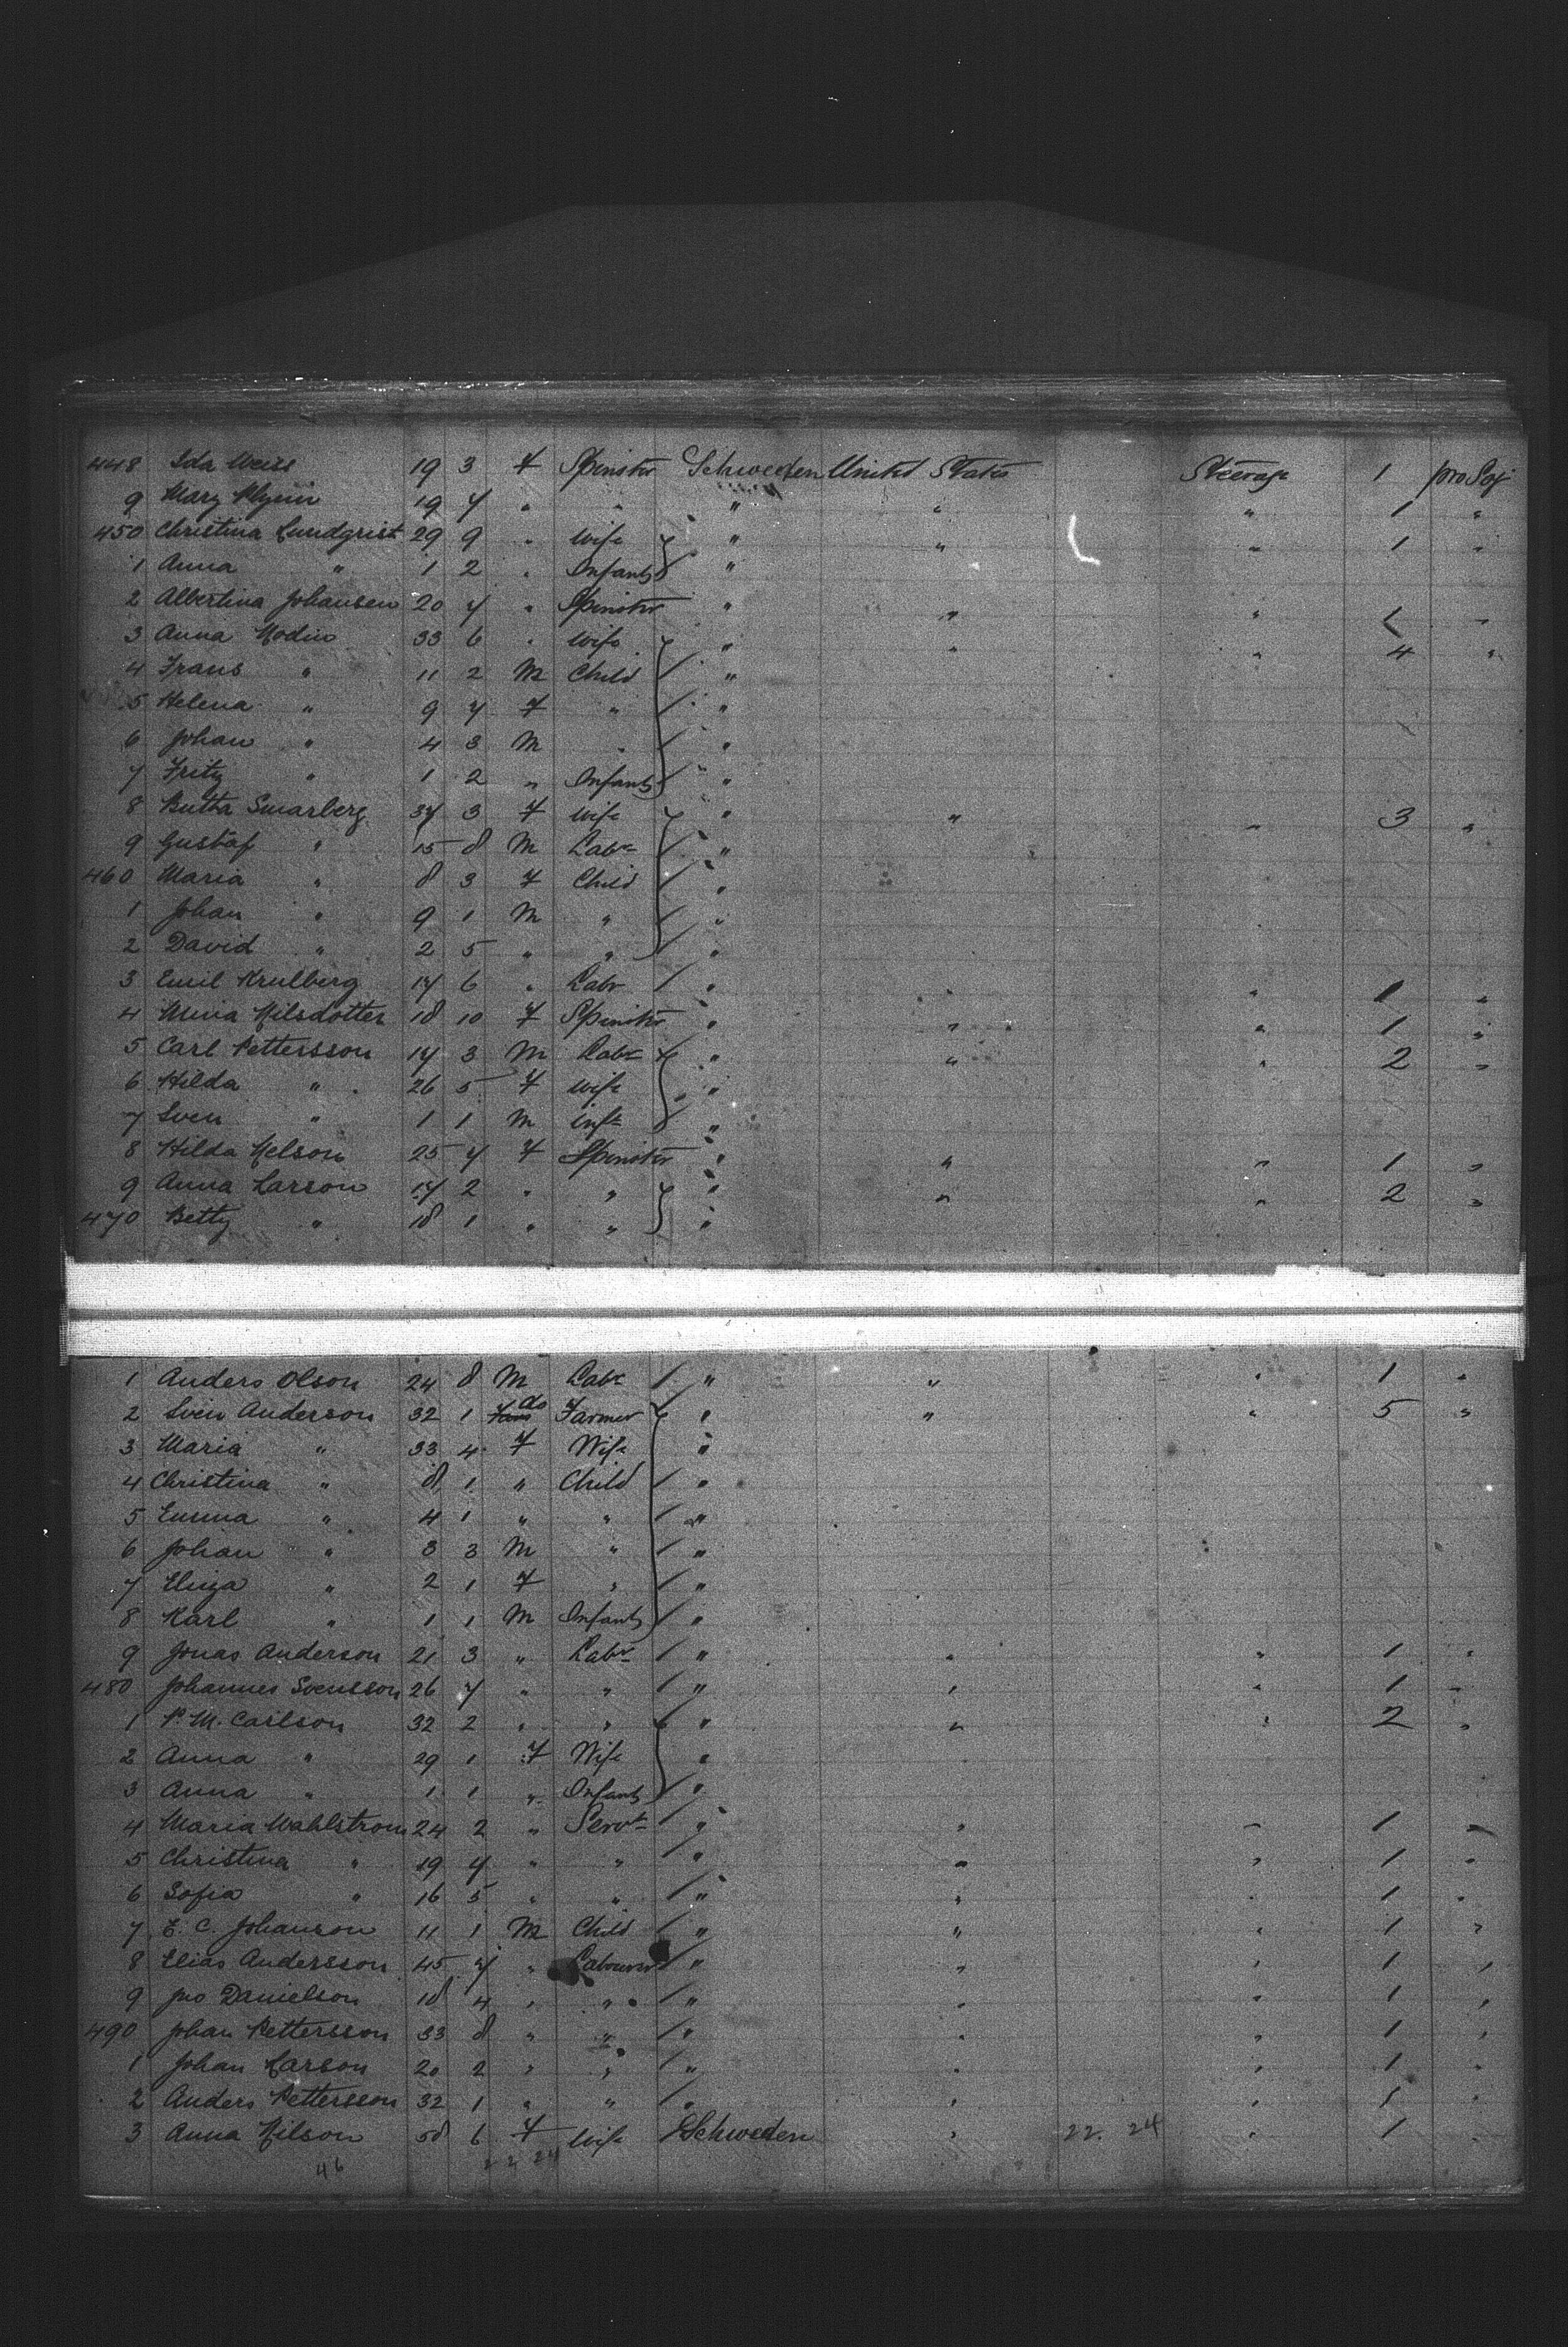 448 Ida Weiss 19 3 F Spinster Schweden United States Steerage 1 pro Soj
9 Mary 19 7 " " " " " 1 "
450 Christina Lundqrist 29 9 " Wife " " " 1 "
1 Anna " 1 2 " Infant "
2 Albertina Johansen 20 7 " Spinster " " " 1 "
3 Anna Modin 33 6 " Wife " " " 4 "
4 Frans " 11 2 M Child "
5 Helena " 9 7 F " "
6 Johan " 4 3 M " "
7 Fritz " 1 2 " Infant "
8 Smarberg 37 3 F Wife " " " 3 "
9 Gustaf " 15 8 M Labr "
460 Maria " 8 3 F Child "
1 Johan " 9 1 M " "
2 David " 2 5 " " "
3 Emil Krulberg 17 6 " Labr " " " 1 "
4 Mina Nilsdotter 18 10 F Spinster " " " 1 "
5 Carl Pettersson 17 3 M Labr " " " 2 "
6 Hilda " 26 5 F Wife "
7 Sven " 1 1 M Inft "
8 Hilda Nelson 25 7 F Spinster " " " 1 "
9 Anna Larson 17 2 " " " " " 2 "
470 Betty " 18 1 " " "
1 Anders Olson 24 8 M Labr " " " 1 "
2 Sven Anderson 32 1 do Farmer " " " 5 "
3 Maria " 33 4 F Wife "
4 Christina " 8 1 " Child "
5 Emma " 4 1 " " "
6 Johan " 3 3 M " "
7 Eliza " 2 1 F " "
8 Karl " 1 1 M Infant "
9 Jonas Anderson 21 3 " Labr " " " 1 "
480 Johannes Svensson 26 7 " " " " " 1 "
1 P. M. Carlson 32 2 " " " " " 2 "
2 Anna " 29 1 F Wife "
3 Anna " 1 1 " Infant "
4 Maria Wahlstrom 24 2 " Servt " " " 1 "
5 Christina " 19 7 " " " " " 1 "
6 Sofia " 16 5 " " " " " 1 "
7 E. C. Johanson 11 1 M Child " " " 1 "
8 Elias Andersson 45 7 " Labourer " " " 1 "
9 Jno Danielson 18 4 " " " " " 1 "
490 Johan Pettersson 33 8 " " " " " 1 "
1 Johan Larson 20 2 " " " " " 1 "
2 Anders Pettersson 32 1 " " " " " 1 "
3 Anna Nilson 58 6 F Wife Schweden " 22. 24 " 1
46 22 24